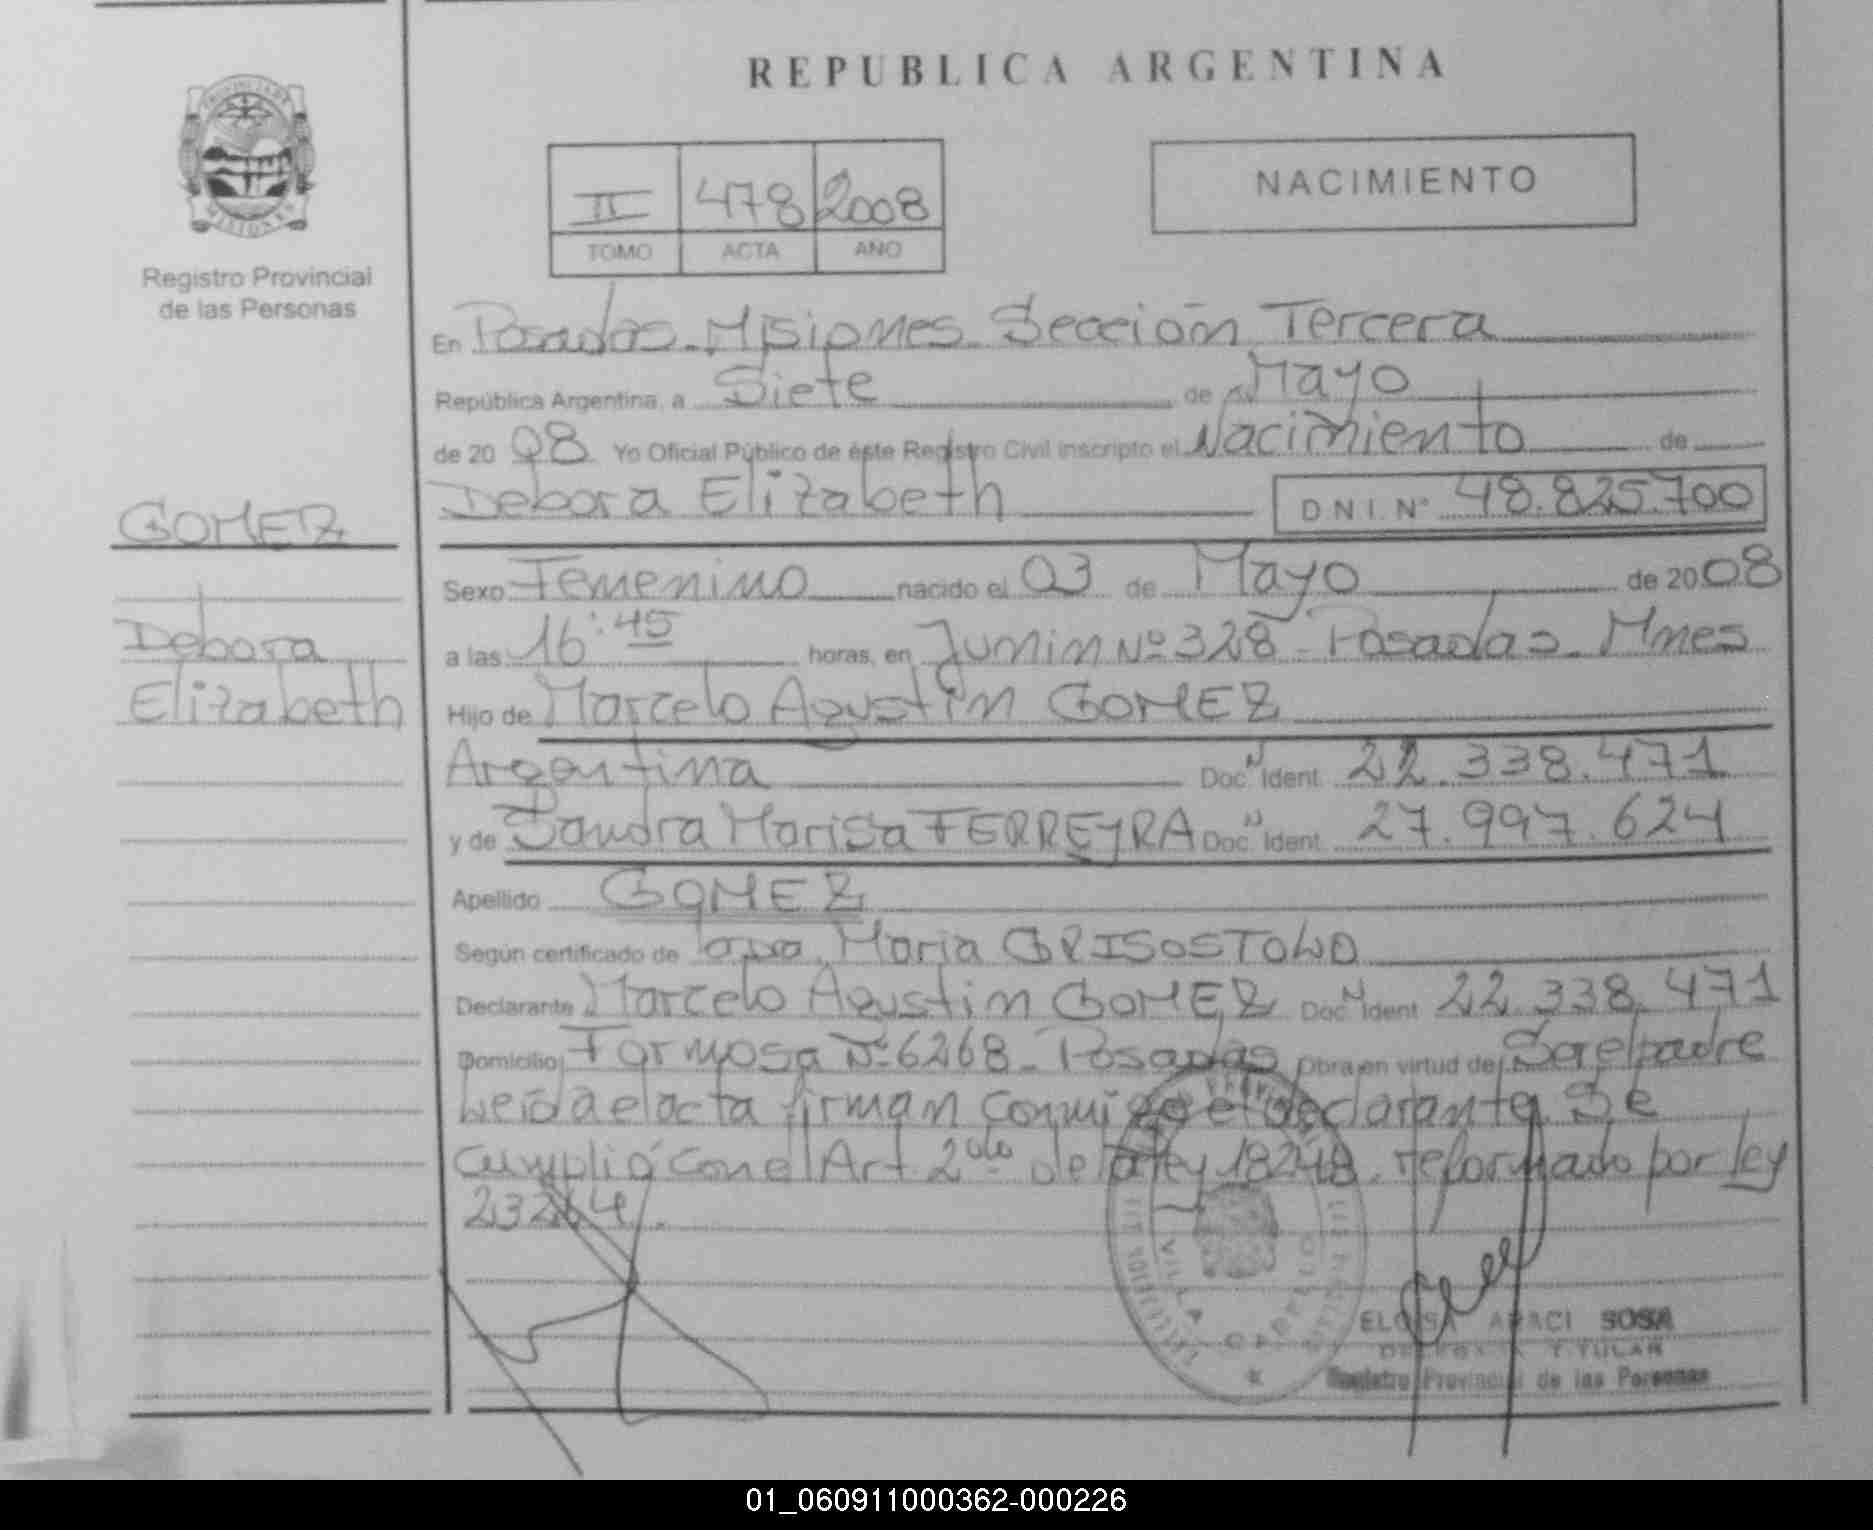 REPUBLICA ARGENTINA
II 478 2008
TOMO ACTA AÑO
NACIMIENTO
Registro Provincial
de las Personas
En Posadas Misiones Sección Tercera
República Argentina, a Siete de Mayo
de 2008 Yo Oficial Público de éste Registro Civil inscripto el Nacimiento de
Debora Elizabeth D N I. N° 48.825.700
GOMEZ
Debora
Elizabeth
Sexo Femenino nacido el 03 de Mayo de 2008
a las 16:45 horas, en Junin Nº 328 - Posadas - Mnes
Hijo de Marcelo Agustin GOMEZ
Argentina Doc. N Ident. 22.338.471
y de Sandra Marisa FERREYRA Doc. N Ident. 27.997.624
Apellido GOMEZ
Según certificado de Maria GRISOSTOLO
Declarante Marcelo Agustin GOMEZ Doc. N Ident 22.338.471
Domicilio Formosa Nº 6268 - Posadas Obra en virtud de Ser el padre
Leida el acta firman conmigo el declarante. Se
cumplió con el Art 2do de la ley 18248. reformado por ley
23264.
VILLA CABELLO
ELOISA ARACI SOSA
DELEGADA TITULAR
Registro Provincial de las Personas
01_060911000362-000226